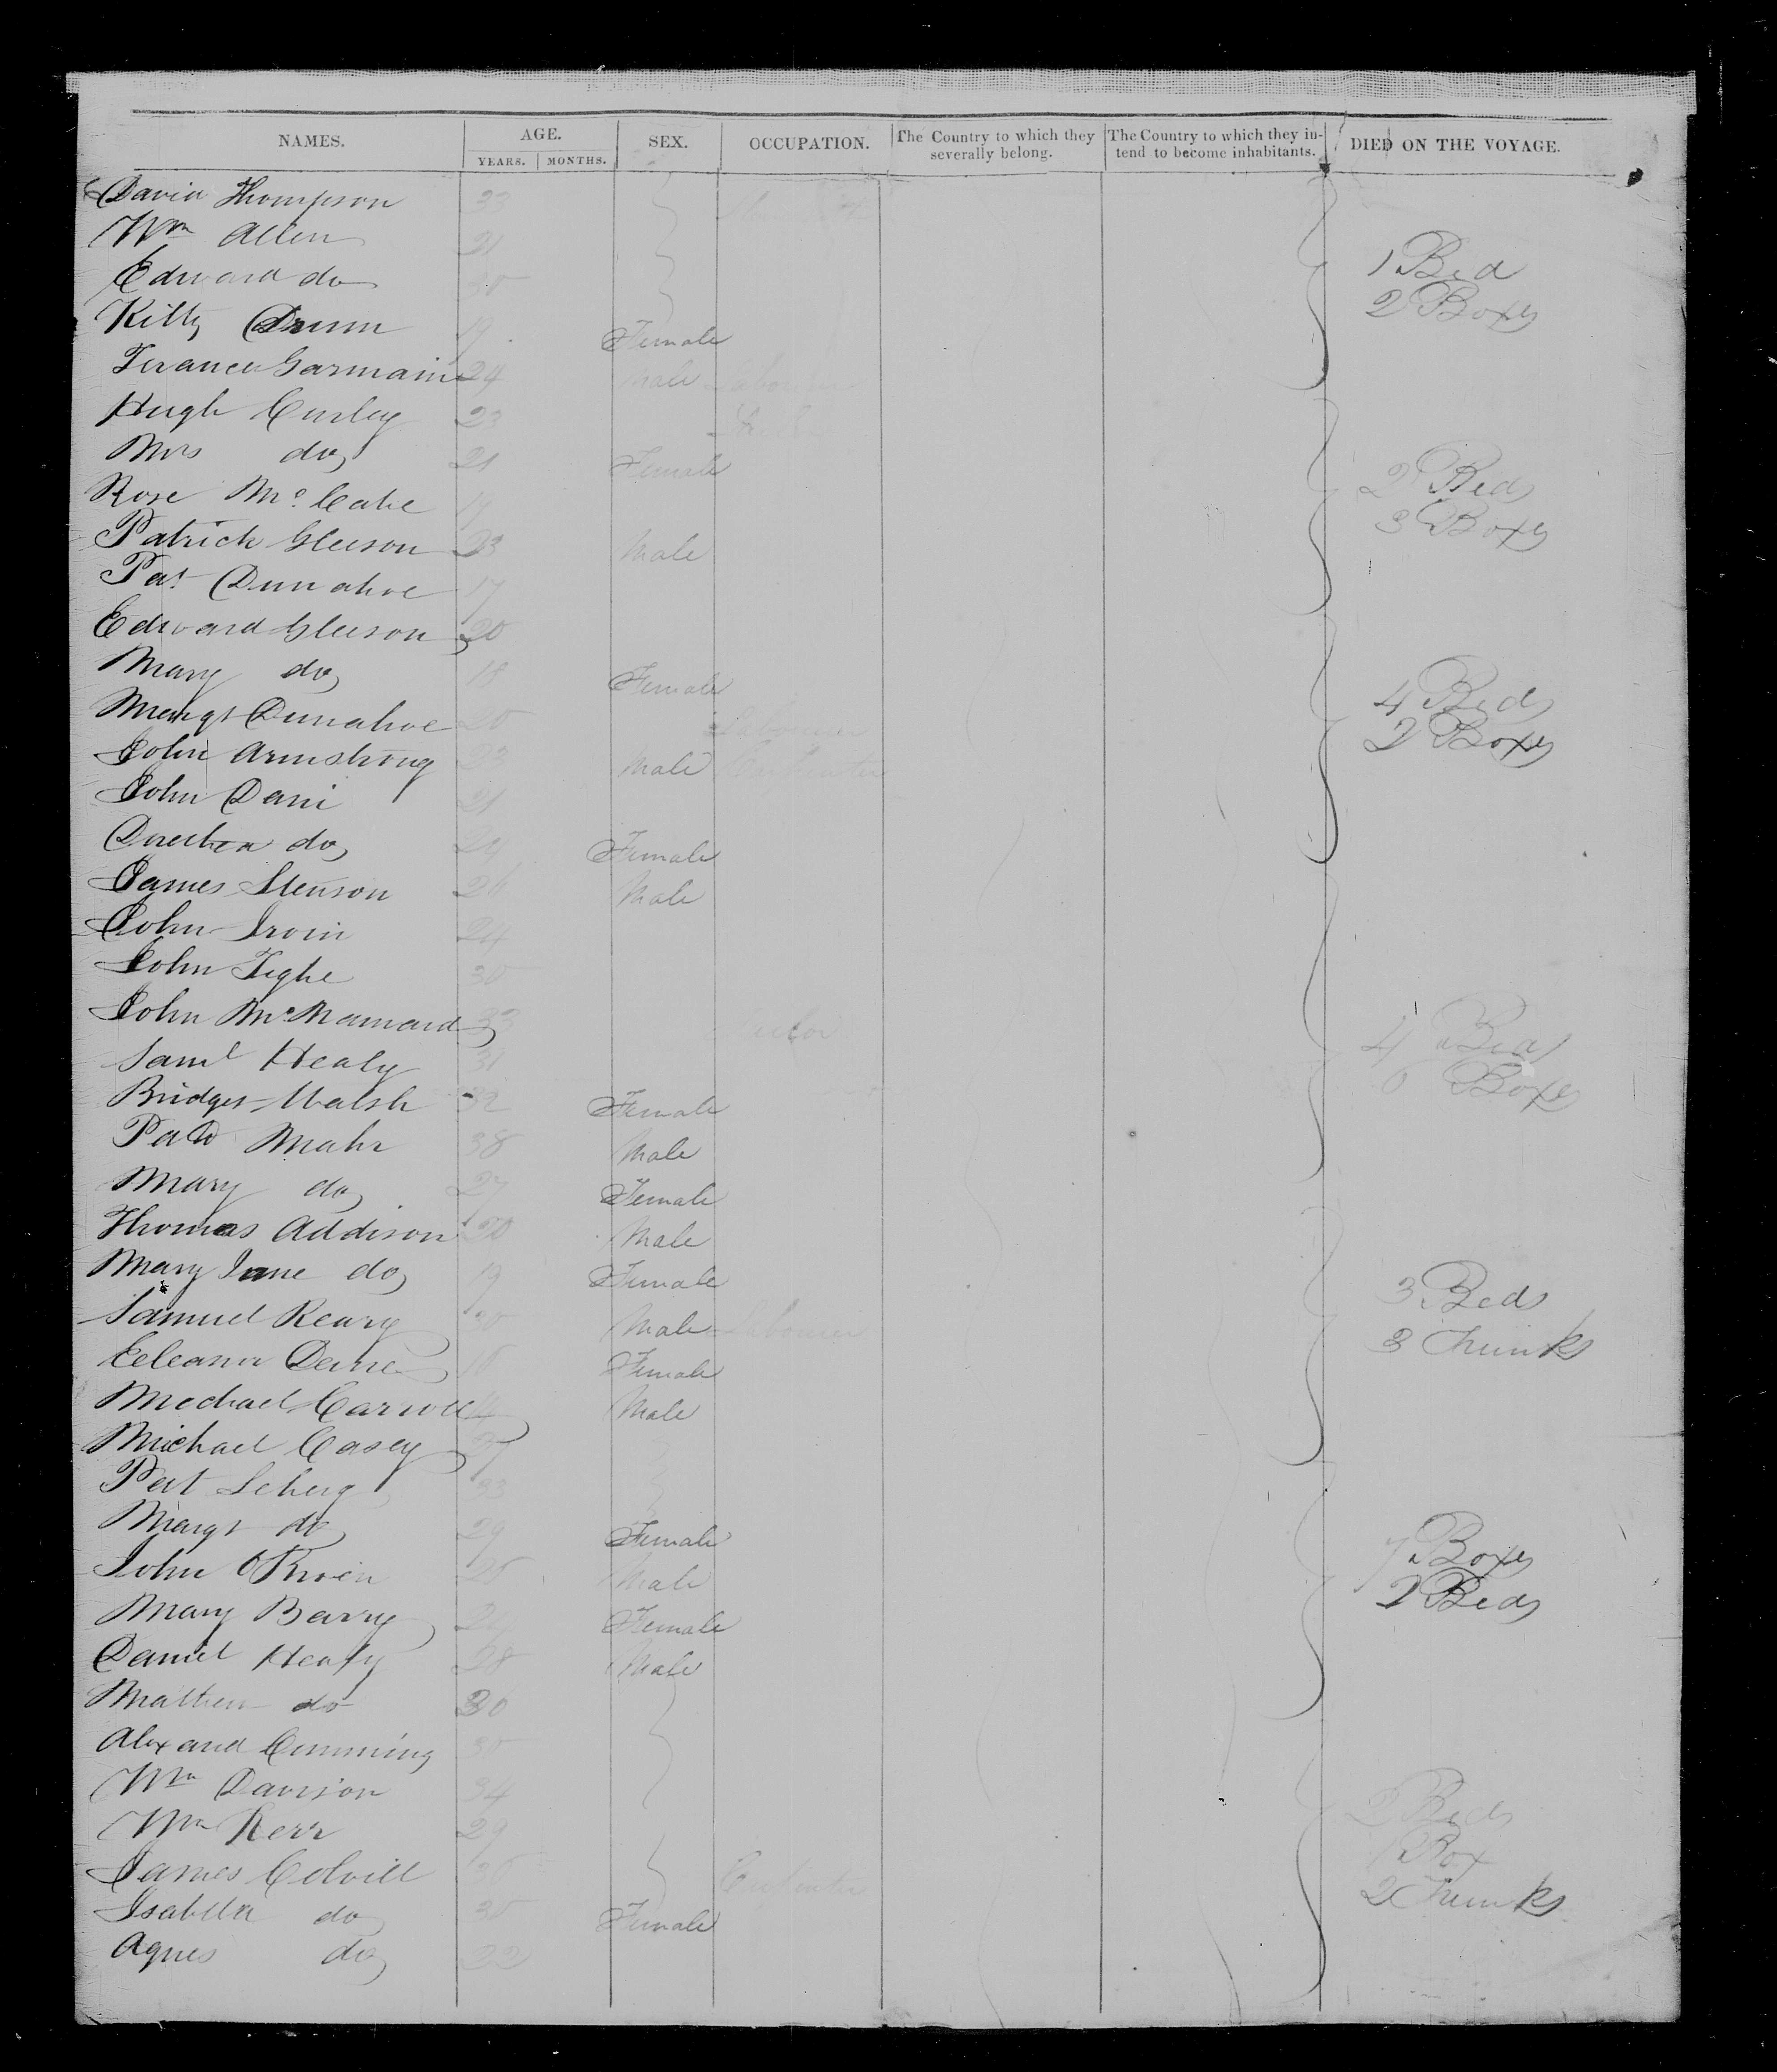 NAMES. AGE. SEX. OCCUPATION. The Country to which they severally belong. The Country to which they intend to become inhabitants. DIED ON THE VOYAGE.
YEARS. MONTHS.
David Thompson 23
Wm Allen 21
Edward do 30 1 Bed
Kitty Drum 19 Female 2 Boxes
Terance Garmain 24 Male Labourer
Hugh Curley 23
Mrs do 21 Female 2 Beds
Rose McCabe 19 3 Boxes
Patrick Gleeson 23 Male
Pat Dunahoe 17
Edward Gleeson 20
Mary do 18 Female 4 Beds
Margt Dunahoe 20 Labourer 2 Boxes
John Armstrong 23 Male Carpenter
John Dani 21
do 24 Female
James Stenson 26 Male
John Irvin 24
John Tighe 30
John McNamard 33
Saml Healy 31 4 Beds
Bridget Walsh 32 Female 6 Boxes
Patk Mahr 38 Male
Mary do 27 Female
Thomas Addison 30 Male
Mary Jane do 19 Female 3 Beds
Samuel Keary 30 Male Labourer 3 Trunks
Eleanor Female
Michael Carroll Male
Michael Casey 27
Pat 33
Margt do 29 Female 7 Boxes
John OBrien 25 Male 2 Beds
Mary Barry Female
Daniel Healy 28 Male
Mathew do 36
Alexand Cumming 30
Wm Davison 34 2 Beds
Wm Kerr 29 1 Box
James Colvill 36 Carpenter 2 Trunks
Isabella do 30 Female
Agnes do 22